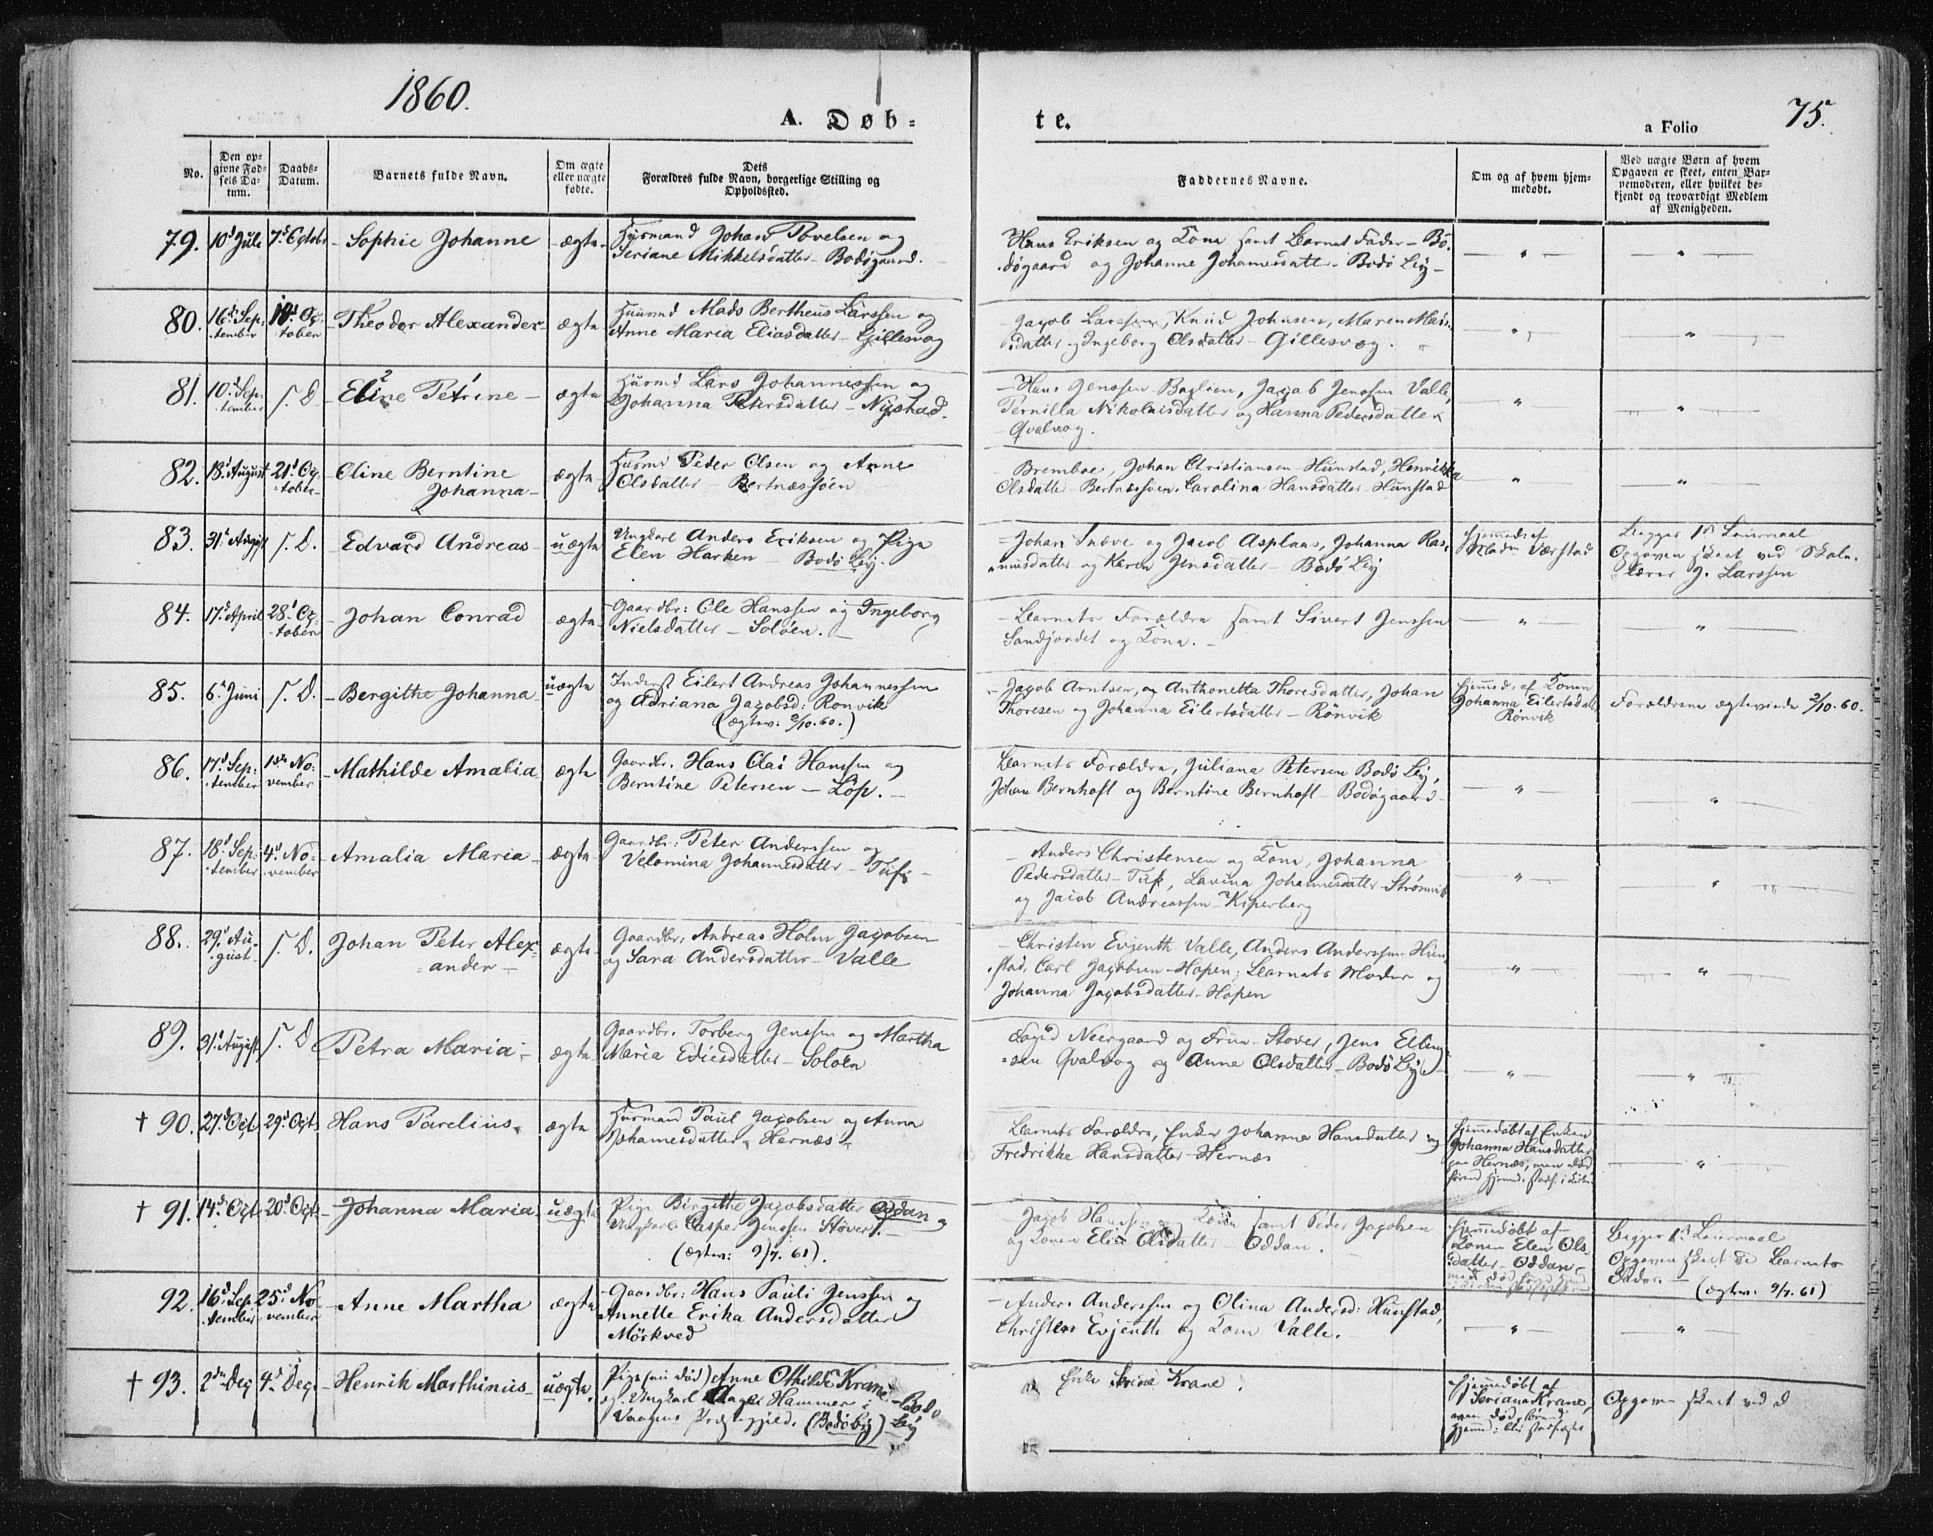 1860.
A. Døb-
te.
a Folio
75.
No.
Den op-
givne Fød-
sels Da-
tum.
Daabs-
Datum.
Barnets fulde Navn.
Om ægte
eller uægte
fødte.
Dets
Forældres fulde Navn, borgerlige Stilling og
Opholdssted.
Faddernes Navne.
Om og af hvem hjem-
medøbt.
Ved uægte Børn af hvem
Opgaven er skeet, enten Bar-
nemoderen, eller hvilket be-
kjendt og troværdigt Medlem
af Menigheden.
79. 10d Juli 7d Octobr Sophie Johanne - ægte - Huusmand Johan Povelsen og
Seriane Mikkelsdatter - Bodøgaard.
Hans Eriksen og Kone samt Barnets Fader - Bo-
døgaard og Johanne Johannesdatter - Bodø By -
80. 16d Sep- 14d Oc- Theodor Alexander - ægte - Huusmd Mads Bertheus Larssen og
tember tober Anne Maria Eliasdatter - Gillesvog
Jacob Larssen, Knud Johnsen, Maren
datter og Ingeborg Olsdatter - Gillesvog.
81. 10d Sep- S. D. Eline Petrine - ægte Husmd Lars Johannessen og
tember Johanna Petersdatter - Nystad.
- Hans Jenssen Bagløen, Jacob Jenssen Valle,
Pernilla Nikolaisdatter og Hanna Pedersdatter
Qvalvog.
82. 18d August 21d Oc- Oline Berntine ægte Husmd Peder Olsen og Anne
tober Johanna - Olsdatter - Bertnæssøen
- Bremboe, Johan Christiansen Hunstad, Henrikka
Olsdatter - Bertnæssøen. Carolina Hansdatter - Hunstad
83. 31d Augst S. D. - Edvard Andreas - uægte Ungkarl Anders Eriksen og Pige
Elen Harken - Bodø By.
- Johan Snøve og Jacob Asplaas, Johanna Ras-
musdatter og Karen Jensdatter - Bodø By
Hjemmed. af
Værstad
Begges 1st Leiermaal
Opgaven skeet ved Skole-
lærer J. Larssen
84. 17d April 28d Oc- - Johan Conrad ægte Gaardbr: Ole Hanssen og Ingeborg
tober Nielsdatter - Soløen.
- Barnets Forældre samt Sivert Jenssen
Sandjordet og Kone. -
85. 6d Juni S. D. - Bergithe Johanna - uægte Inderst Eilert Andreas Johannessen
og Adriana Jacobsd: Rønvik
(ægtev: 2/10.60.)
- Jacob Arntsen, og Anthonetta Thoresdatter, Johan
Thoresen og Johanna Eilertsdatter - Rønvik
Hjemmed. af Konen
Johanna Eilertsdat
Rønvik
Forældrene ægteviede 2/10.60.
86. 17d Sep- 1ste No- - Mathilde Amalia ægte Gaardbr. Hans Olai Hansen og
tember vember Berntine Petersen - Løp. -
Barnets Forældre, Juliana Petersen Bodø By,
Johan Bernhoft og Berntine Bernhoft - Bodøgaard -
87. 18d Sep- 4d No- Amalia Maria - ægte - Gaardbr: Peter Anderssen og
tember vember Velomina Johannesdatter - Tuf -
- Anders Christensen og Kone, Johanna
Pedersdatter - Tuf, Lavina Johannesdatter Strømvik
og Jacob Andreassen - Kiperberg
88. 29d Au- S. D. Johan Peter Alex- ægte - Gaardbr. Andreas Holm Jacobsen
gust ander - og Sara Andersdatter - Valle
- Christen Evjenth Valle, Anders Anderssen Hun-
stad, Carl Jacobsen - Hopen; Barnets Moder og
Johanna Jacobsdatter - Hopen
89. 31d August S. D Petra Maria - ægte Gaardbr. Torberg Jenssen og Martha
Maria Ediesdatter - Soløen
Foged Neergaard og Frue - Stover, Jens Elling-
sen Qvalvog og Anne Olsdatter - Bodø By
† 90. 27d Oct. 29d Oct. Hans Parelius ægte Husmand Paul Jacobsen og Anna
Johannesdatter Hernæs
Barnets Forældre, Enke Johanna Hansdatter og
Fredrikke Hansdatter - Hernæs
Hjemmedøbt af Enken
Johanna Hansdatter
paa Hernæs, men død
† 91. 14d Oct. 20d Oct. - Johanna Maria uægte Pige Birgithe Jacobsdatter Oddan og
Ungkarl Casper Jenssen Støver. -
(ægtev: 9/7.61).
Jacob Hans og Kone samt Peder Jacobsen
og Konen Elen Olsdatter - Oddan.
Hjemmedøbt af
Konen Elen Ols-
datter - Oddan,
Begges 1st Leiermaal
Opgaven skeet ved Barnets
Fader. - (ægtev. 9/7.61)
92. 16d Sep- 25d No- - Anne Martha ægte - Gaardbr: Hans Pauli Jenssen og
tember vember Annette Erika Andersdatter
Mørkved
- Anders Anderssen og Olina Andersd: Hunstad,
Christen Evjenth og Kone Valle. -
† 93. 2den Dec 4d Dec. Henrik Marthinus - uægte. Pige (nu død) Anne Othilde Krane - Bodø
og Ungkarl Hammer i By
Vaagens Præstegjeld. (Bodøby)
Enke Serine Krane.
Hjemmedøbt af
Seriana Krane,
Opgaven skeet ved d